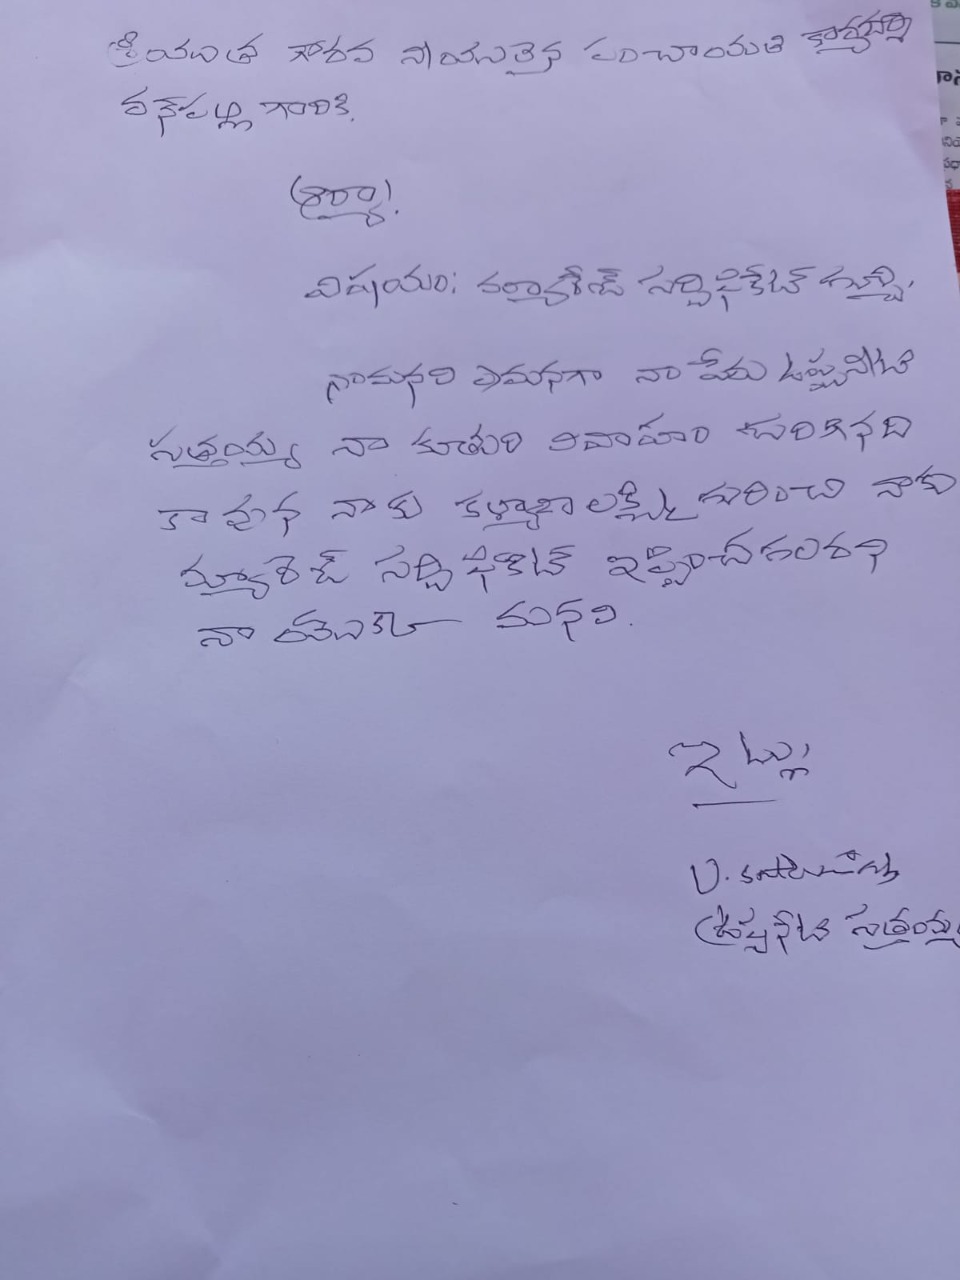 శ్రీయుత గౌరవ నీయులైన పంచాయతి కార్యదర్శి
వన్నేపల్లి గారికి.
ఆర్యా!
విషయం: మ్యారేజ్ సర్టిఫికేట్ గూర్చి.
నామనవి ఏమనగా నా పేరు ఉప్పునీటి
సత్తయ్య నా కూతురి వివాహం జరిగినది
కావున నాకు కళ్యాణ లక్ష్మి గురించి నాకు
మ్యారేజ్ సర్టిఫికెట్ ఇప్పించగలరని
నా యొక్క మనవి.
ఇట్లు
U.
ఉప్పునీటి సత్తయ్య